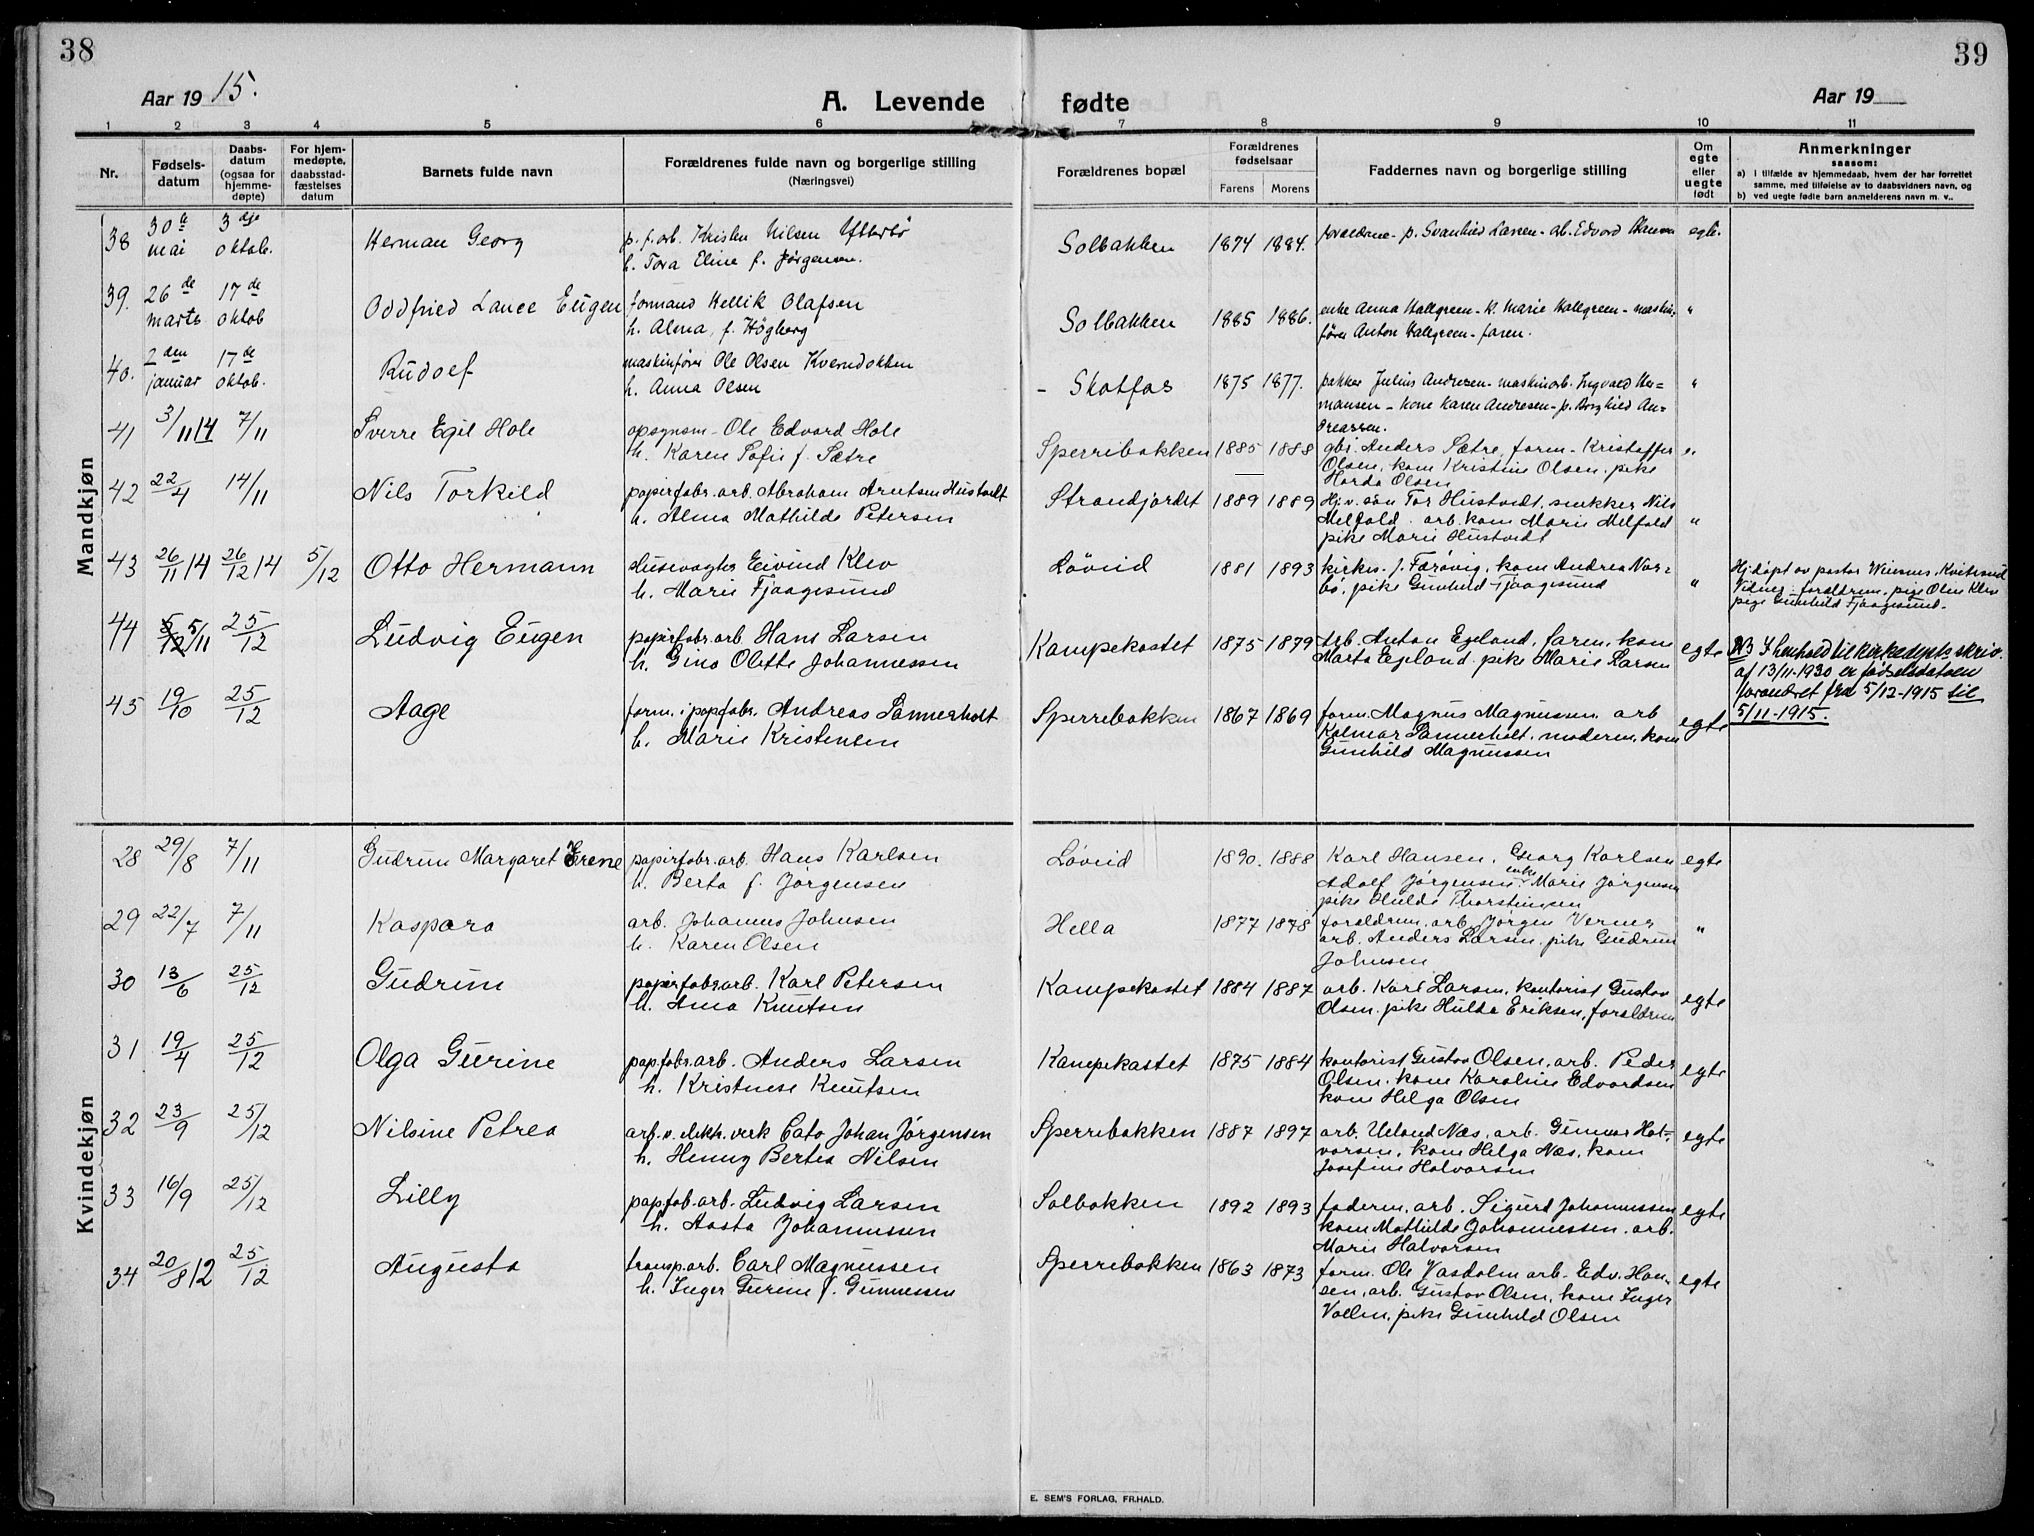 38
39
Aar 1915.
A. Levende fødte
Aar 19
1 2 3 4 5 6 7 8 9 10 11
Nr.
Fødsels-
datum
Daabs-
datum
(ogsaa for
hjemme-
døpte)
For hjem-
medøpte,
daabsstad-
fæstelses
datum
Barnets fulde navn
Forældrenes fulde navn og borgerlige stilling
(Næringsvei)
Forældrenes bopæl
Forældrenes
fødselsaar
Farens Morens
Faddernes navn og borgerlige stilling
Om
egte
eller
uegte
født
Anmerkninger
saasom:
a) I tilfælde av hjemmedaab, hvem der har forrettet
samme, med tilføielse av to daabsvidners navn, og
b) ved uegte fødte barn anmelderens navn m. v..
Mandkjøn
38 30te mai 3dje oktob. Herman Georg
p. f. arb. Kristen Nilsen
h. Tora Eline f. Jørgensen.
Solbakken 1874 1884.
forældrene - p. Svanhild Larsen - arb. Edvard Hansen egte.
39. 26de marts 17de oktob Oddfried Lance Eugen
formand Kellik Olafsen
h. Alma, f. Högberg
Solbakken 1885 1886.
enke Anna Hallgreen - k. Marie Hallgreen - maskin-
fører Anton Hallgreen - faren. "
40. 2den januar 17de oktob. Rudolf
maskinfører Ole Olsen Kverndokken
h. Anna Olsen
- Skotfos 1875 1877.
pakker Julius Andresen - maskinarb. Ingvald Her-
mansen - kone Karen Andresen - p. Borghild An-
dreassen. "
41 3/11 14 7/11 Sverre Egil Hole
opsynsm. Ole Edvard Hole
h. Karen Sofie f. Sætre
Sperribakken 1885 1888
gbr. Anders Sætre, form. Kristoffer
Olsen, kone Kristine Olsen, pike
Harda Olsen "
42 22/4 14/11 Nils Torkild
papirfabr. arb. Abraham Arntsen Hustvedt
h. Alma Mathilde Petersen
Strandjordet 1889 1889
Hj.v. søn Tor Hustvedt, snekker Nils
Melfald, arb. kone Marie Melfald
pike Marie Hustvedt "
43 26/11 14 26/12 14 5/12 Otto Hermann
slusevogter Eivind Klev
h. Marie Fjaagesund
Løveid 1881 1893
kirkes. J. Færøvig, kone Andrea Nor-
bø, pike Gunhild Fjaagesund "
Hj.døpt av pastor Kviteseid
Vidner: forældrene, pige Olea Klev
pige Gunhild Fjaagesund.
44 5/12 5/11 25/12 Ludvig Eugen
papirfabr. arb Hans Larsen
h. Gina Olette Johannessen
Kampekastet 1875 1879
arb. Anton Egeland, faren, kone
Marta Egeland, pike Marie Larsen egte
NB I henhold til Kirkedepts skriv.
af 13/11-1930 er fødselsdatoen
forandret fra 5/12-1915 til
5/11-1915.
45 19/10 25/12 Aage
form. i papfabr. Andreas Sannerholt
h. Marie Kristensen
Sperribakken 1867 1869
form. Magnus Magnussen, arb
Kolmar Sannerholt, moderen, kone
Gunhild Magnussen egte
Kvindekjøn
28 29/8 7/11 Gudrun Margaret Irene
papirfabr. arb. Hans Karlsen
h. Berta f. Jørgensen
Løveid 1890. 1888
Karl Hansen, Georg Karlsen
Adolf Jørgensen, enke Marie Jørgensen
pike Hulda Thorstensen egte
29 22/7 7/11 Kaspara
arb. Johannes Johnsen
h. Karen Olsen
Hella 1877 1878
forældrene, arb. Jørgen Verner
arb. Anders Larsen, pike Gudrun
Johnsen "
30 13/6 25/12 Gudrun
papirfabr. arb. Karl Petersen
h. Anna Knutsen
Kampekastet 1884 1887
arb. Karl Larsen, kontorist Gustav
Olsen, pike Hulda Eriksen, forældrene egte
31 19/4 25/12 Olga Gurine
papfabr. arb. Anders Larsen
h. Kristense Knutsen
Kampekastet 1875 1884
kontorist Gustav Olsen, arb. Peder
Olsen, kone Karoline Edvardsen
kone Helga Olsen egte
32 23/9 25/12 Nilsine Petrea
arb. v. elektr. verk Cato Johan Jørgensen
h. Henny Bertea Nilsen
Sperribakken 1887 1897
arb. Næs, arb. Gunnar Hal-
vorsen, kone Helga Næs, kone
Josefine Halvorsen egte
33 16/9 25/12 Lilly
papfab. arb. Ludvig Larsen
h. Aasta Johannessen
Solbakken 1892 1893
faderen, arb. Sigurd Johannessen
kone Mathilde Johannessen, arb.
Marie Halvorsen egte
34 20/8 12 25/12 Augusta
transp. arb. Carl Magnussen
h. Inger Gurine f. Gunnessen
Sperribakken 1863 1873
form. Ole Vasdalen arb. Edv. Han-
sen, arb. Gustav Olsen, kone Inger
Vollen, pike Gunhild Olsen egte
E. SEM'S FORLAG, FR.HALD.